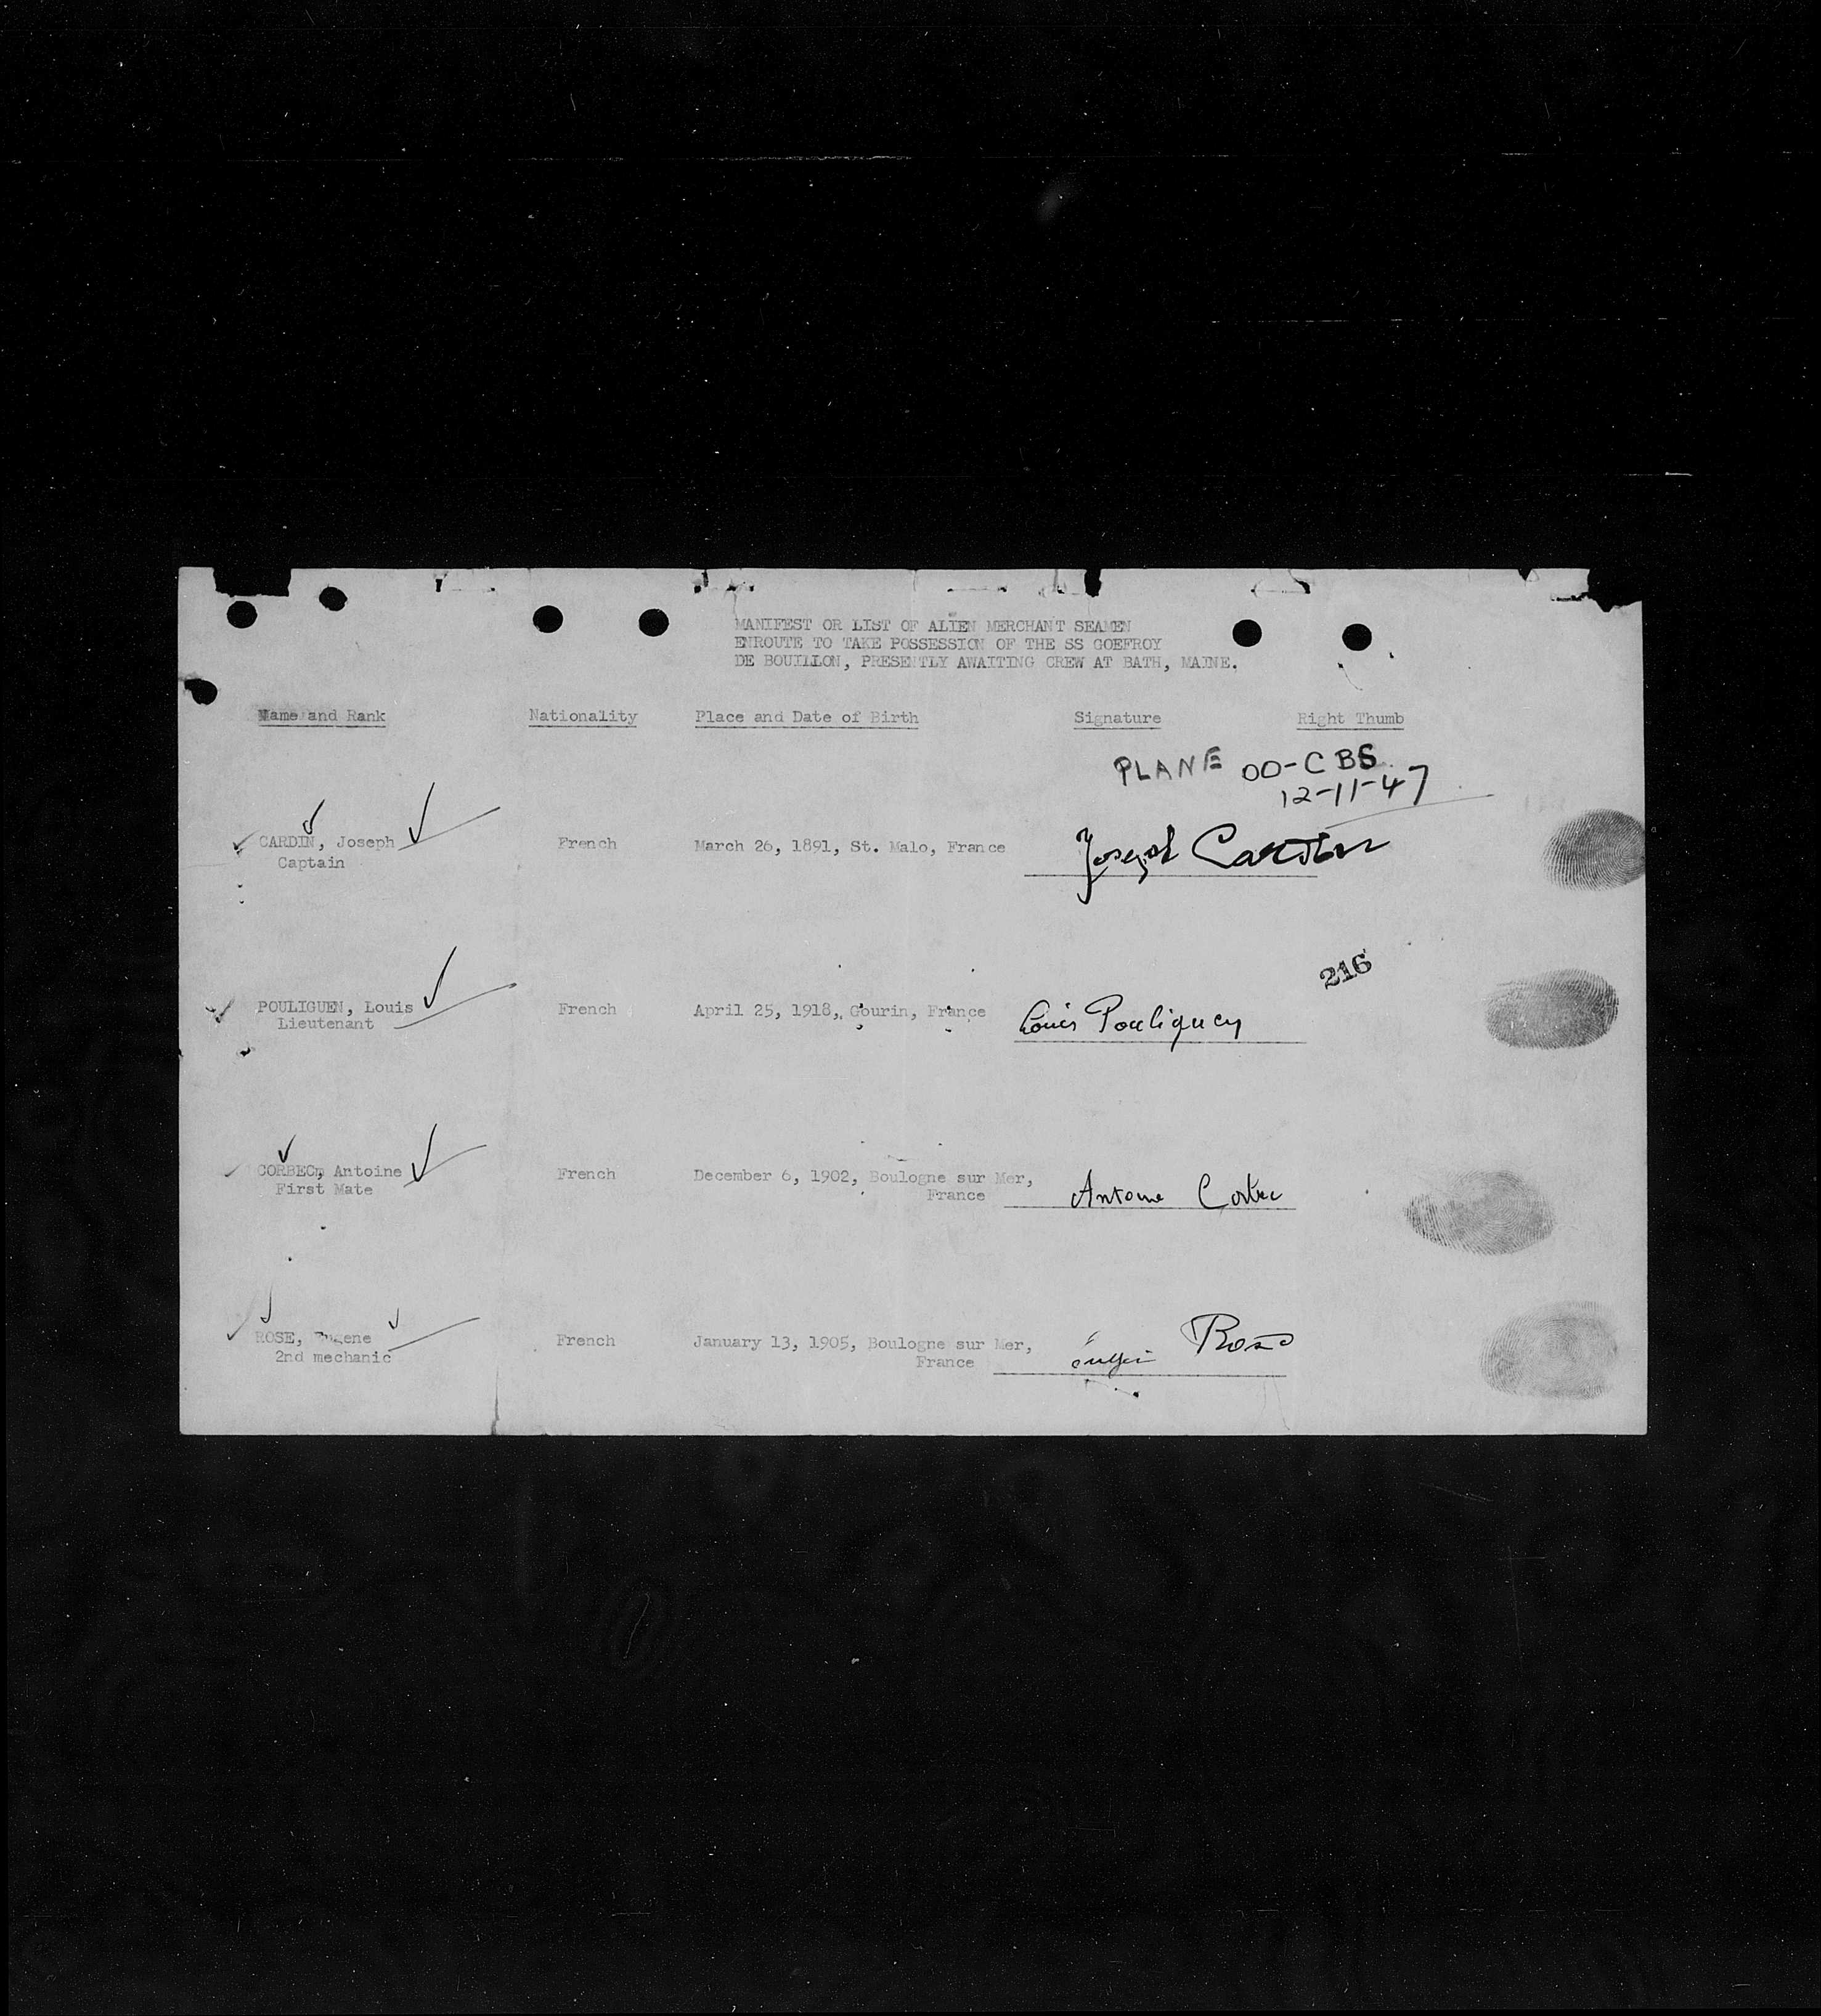 MANIFEST OR LIST OF ALIEN MERCHANT SEAMEN
ENROUTE TO TAKE POSSESSION OF THE SS GOEFROY
DE BOUILLON, PRESENTLY AWAITING CREW AT BATH, MAINE.
Name and Rank Nationality Place and Date of Birth Signature Right Thumb
PLANE OO-CBS
12-11-47
CARDIN, Joseph French March 26, 1891, St. Malo, France Joseph Cardin
Captain
216
POULIGUEN, Louis French April 25, 1918, Gourin, France Louis Pouliquen
Lieutenant
CORBEC, Antoine French December 6, 1902, Boulogne sur Mer, Antoine Corbec
First Mate France
ROSE, Eugene French January 13, 1905, Boulogne sur Mer, Rose
2nd mechanic France